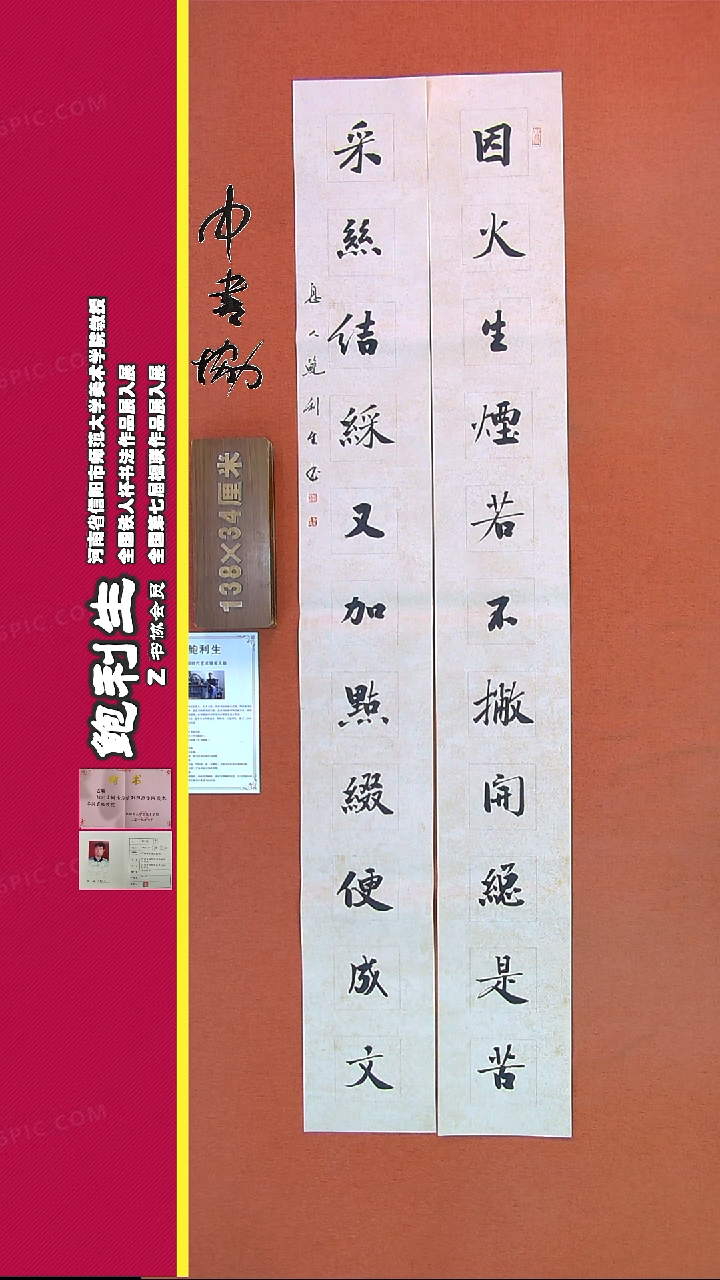 因火生煙若不撇開緫是苦
采絲結綵又加點綴便成文
息人鮑利生書
中书协
138×34厘米
河南省信阳市师范大学美术学院教授
全国铁人杯书法作品展入展
全国第七届楹联作品展入展
鲍利生
Z书协会员
鲍利生